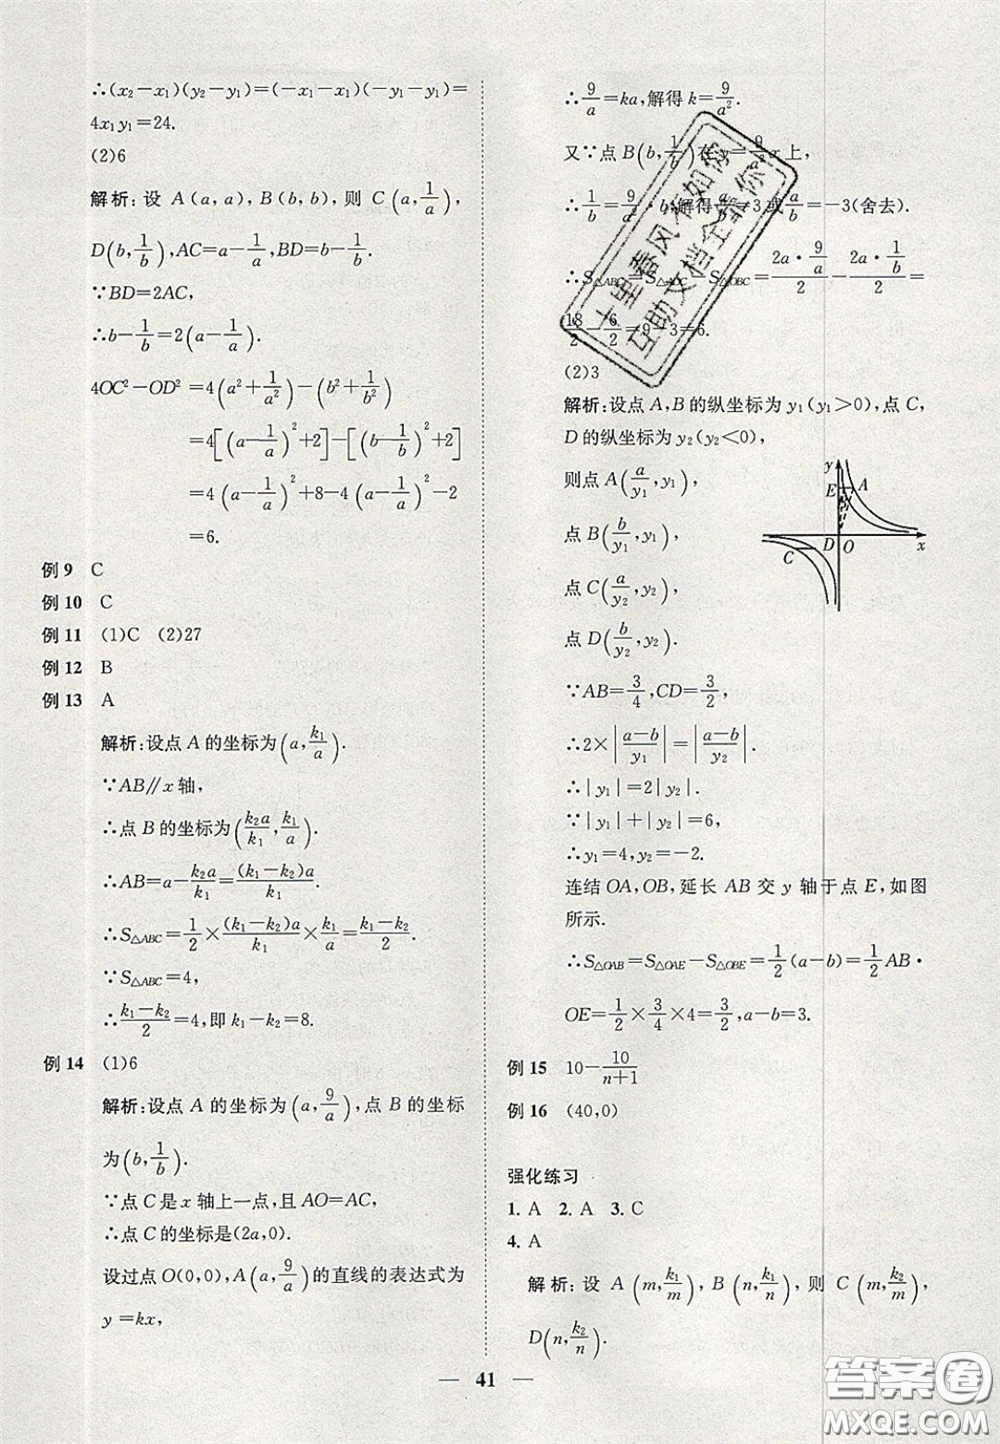 ∴(x₂−x₁)(y₂−y₁)=(−x₁−x₁)(−y₁−y₁)=
4x₁y₁=24.
(2)6
解析:设 A(a,a),B(b,b),则 C(a,1/a),
D(b,1/b),AC=a−1/a,BD=b−1/b.
∵BD=2AC,
∴b−1/b=2(a−1/a).
4OC²−OD²=4(a²+1/a²)−(b²+1/b²)
=4[(a−1/a)²+2]−[(b−1/b)²+2]
=4(a−1/a)²+8−4(a−1/a)²−2
=6.
例 9 C
例 10 C
例 11 (1)C (2)27
例 12 B
例 13 A
解析:设点 A 的坐标为(a,k₁/a).
∵AB∥x 轴,
∴点 B 的坐标为(k₂a/k₁,k₁/a).
∴AB=a−k₂a/k₁=(k₁−k₂)a/k₁.
∴S△ABC=1/2×(k₁−k₂)a/k₁×k₁/a=(k₁−k₂)/2.
∵S△ABC=4,
∴(k₁−k₂)/2=4,即 k₁−k₂=8.
例 14 (1)6
解析:设点 A 的坐标为(a,9/a),点 B 的坐标
为(b,1/b).
∵点 C 是 x 轴上一点,且 AO=AC,
∴点 C 的坐标是(2a,0).
设过点 O(0,0),A(a,9/a)的直线的表达式为
y=kx,
∴9/a=ka,解得 k=9/a².
又∵点 B(b,1/b)在 y=9/a²x 上,
∴1/b=9/a²·b,解得a/b=3 或a/b=−3(舍去).
∴S△ABC=S△AOC−S△OBC=(2a·9/a)/2−(2a·1/b)/2=
18/2−6/2=9−3=6.
(2)3
解析:设点 A,B 的纵坐标为 y₁(y₁>0),点 C,
D 的纵坐标为 y₂(y₂<0),
则点 A(a/y₁,y₁),
点 B(b/y₁,y₁),
点 C(a/y₂,y₂),
点 D(b/y₂,y₂).
y
E
A
D
O
x
C
∵AB=3/4,CD=3/2,
∴2×|(a−b)/y₁|=|(a−b)/y₂|.
∴|y₁|=2|y₂|.
∵|y₁|+|y₂|=6,
∴y₁=4,y₂=−2.
连结 OA,OB,延长 AB 交 y 轴于点 E,如图
所示.
∴S△OAB=S△OAE−S△OBE=1/2(a−b)=1/2AB·
OE=1/2×3/4×4=3/2,a−b=3.
例 15 10−10/(n+1)
例 16 (40,0)
强化练习
1. A 2. A 3. C
4. A
解析:设 A(m,k₁/m),B(n,k₁/n),则 C(m,k₂/m),
D(n,k₂/n).
41
十里春风不如你
互助文档全靠你
答案圈
MXQE.COM